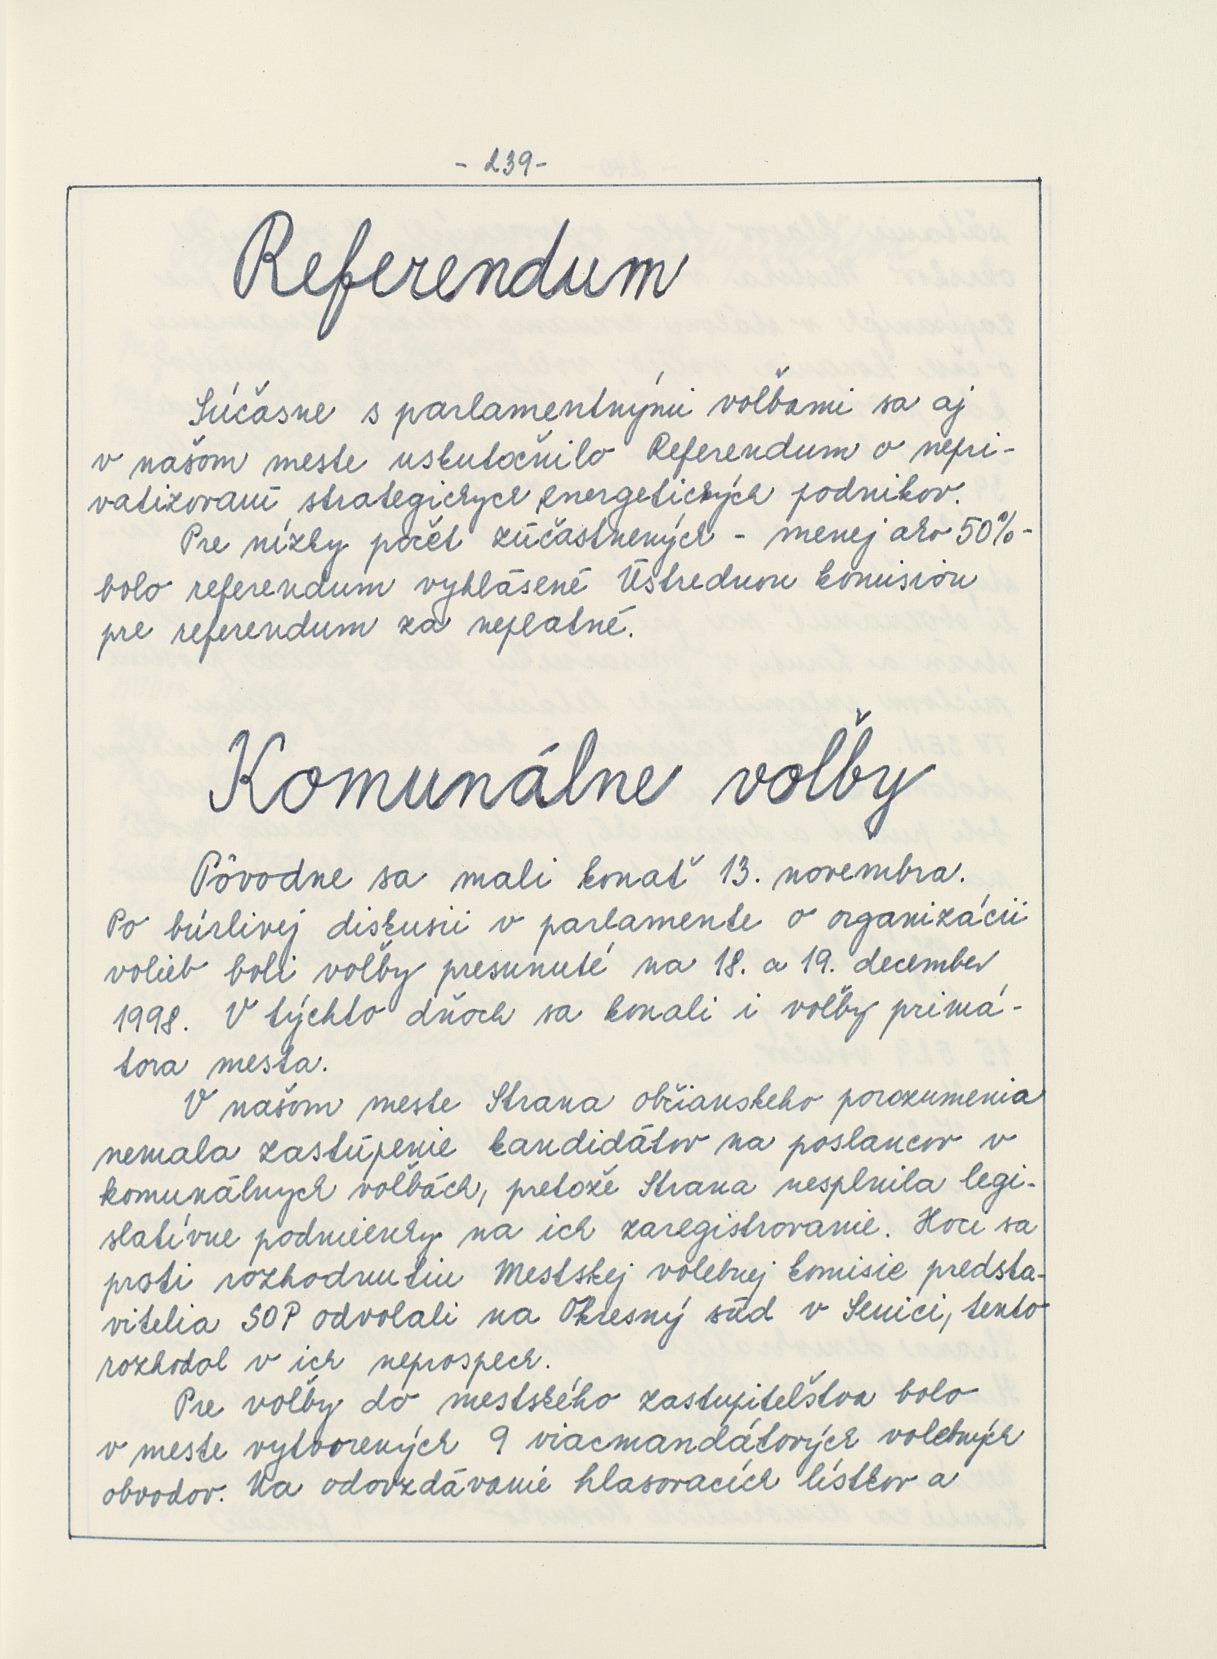 - 239 -
Referendum
Súčasne s parlamentnými voľbami sa aj
v našom meste uskutočnilo Referendum o nepri-
vatizovaní strategických energetických podnikov.
Pre nízky počet zúčastnených - menej ako 50% -
bolo referendum vyhlásené Ústrednou komisiou
pre referendum za neplatné.
Komunálne voľby
Pôvodne sa mali konať 13. novembra.
Po búrlivej diskusii v parlamente o organizácii
volieb boli voľby presunuté na 18. a 19. december
1998. V týchto dňoch sa konali i voľby primá-
tora mesta.
V našom meste Strana občianskeho porozumenia
nemala zastúpenie kandidátov na poslancov v
komunálnych voľbách, pretože Strana nesplnila legi-
slatívne podmienky na ich zaregistrovanie. Hoci sa
proti rozhodnutiu Mestskej volebnej komisie predsta-
vitelia SOP odvolali na Okresný súd v Senici, tento
rozhodol v ich neprospech.
Pre voľby do mestského zastupiteľstva bolo
v meste vytvorených 9 viacmandátových volebných
obvodov. Na odovzdávanie hlasovacích lístkov a